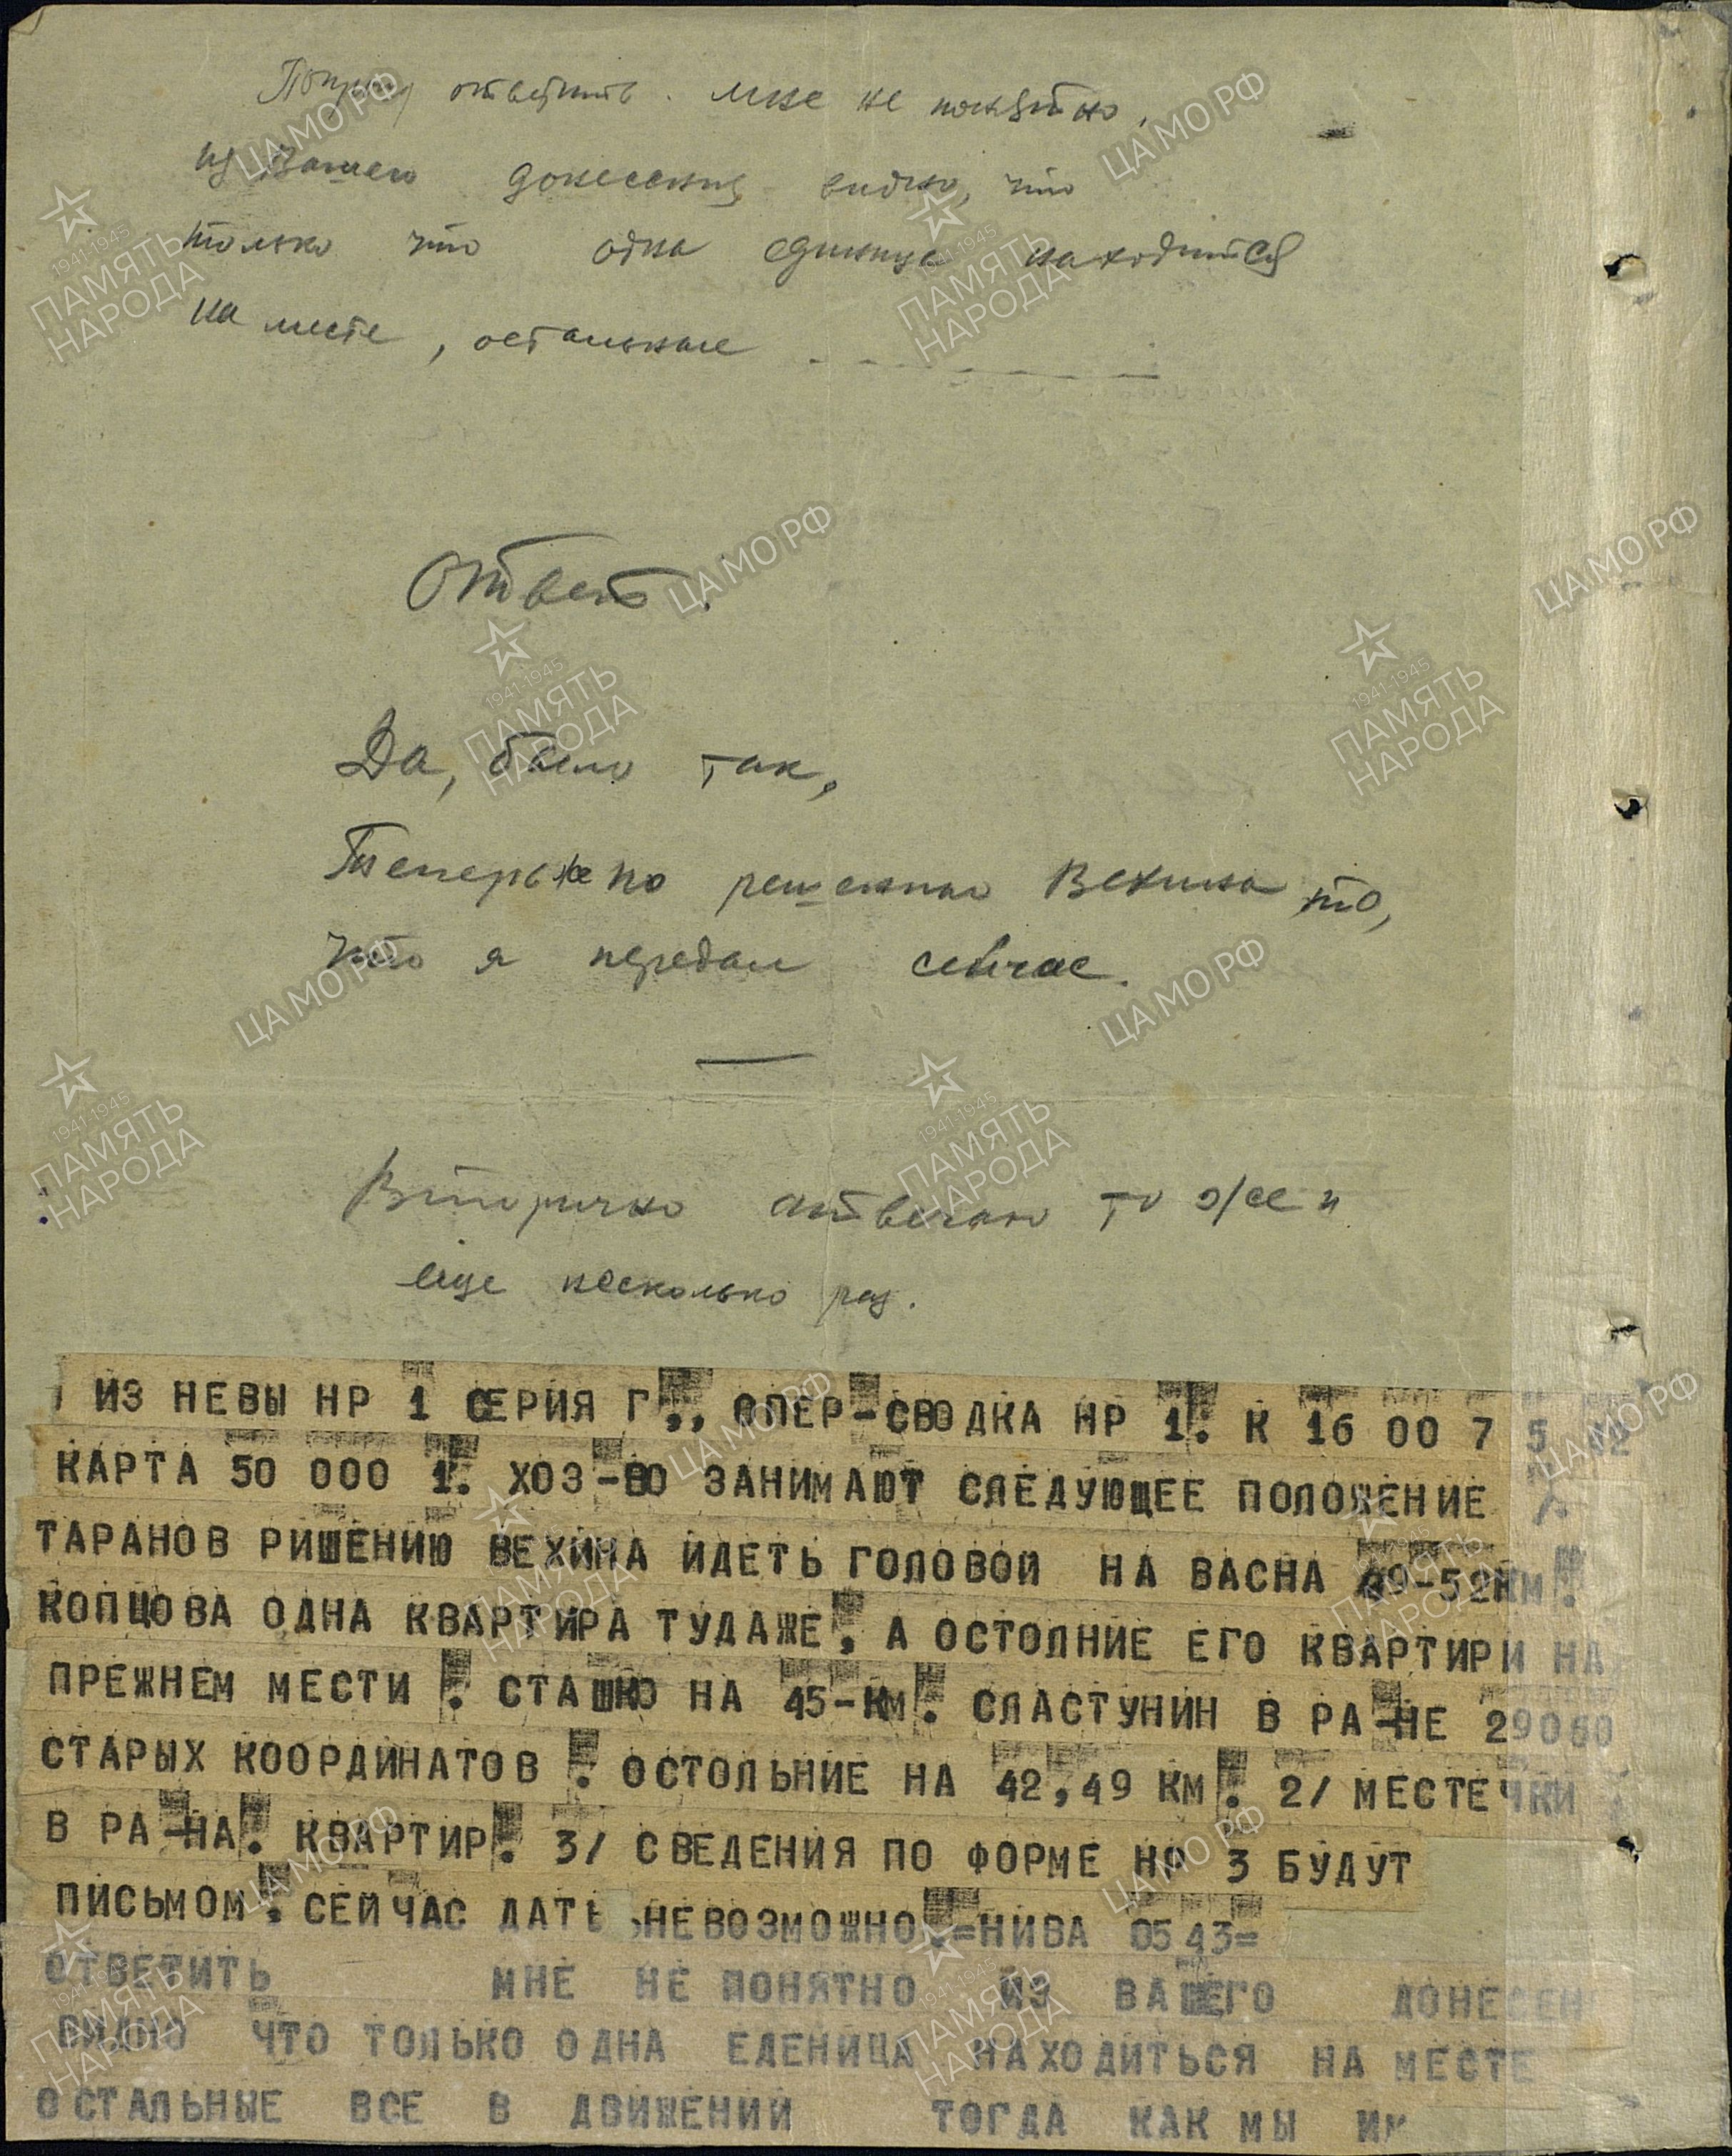 Попрошу ответить. мне не понятно,
из Вашего донесения видно, что
только что одна единица находится
на месте, остальные - - - - - - -
Ответ.
Да, было так,
Теперь же по решению Вехина то,
что я передал сейчас.
Вторично отвечаю то же и
еще несколько раз.
ИЗ НЕВЫ НР 1 СЕРИЯ Г ,, ОПЕР-СВОДКА НР 1. К 16 00 7 5
КАРТА 50 000 1. ХОЗ-ВО ЗАНИМАЮТ СЛЕДУЮЩЕЕ ПОЛОЖЕНИЕ
ТАРАНОВ РИШЕНИЮ ВЕХИНА ИДЕТЬ ГОЛОВОЙ НА ВАСНА 49-52КМ.
КОПЦОВА ОДНА КВАРТИРА ТУДАЖЕ, А ОСТОЛНИЕ ЕГО КВАРТИРИ НА
ПРЕЖНЕМ МЕСТИ . СТАШКО НА 45-КМ. СЛАСТУНИН В РА-НЕ 29060
СТАРЫХ КООРДИНАТОВ . ОСТОЛЬНИЕ НА 42,49 КМ. 2/ МЕСТЕЧКИ
В РА-НА. КВАРТИР. 3/ СВЕДЕНИЯ ПО ФОРМЕ НР 3 БУДУТ
ПИСЬМОМ. СЕЙЧАС ДАТЬ НЕВОЗМОЖНО.=НИВА 0543=
ОТВЕТИТЬ МНЕ НЕ ПОНЯТНО ИЗ ВАШЕГО ДОНЕСЕН
ВИДНО ЧТО ТОЛЬКО ОДНА ЕДЕНИЦА НАХОДИТЬСЯ НА МЕСТЕ
ОСТАЛЬНЫЕ ВСЕ В ДВИЖЕНИИ ТОГДА КАК МЫ
ЦАМО РФ
1941-1945
ПАМЯТЬ
НАРОДА